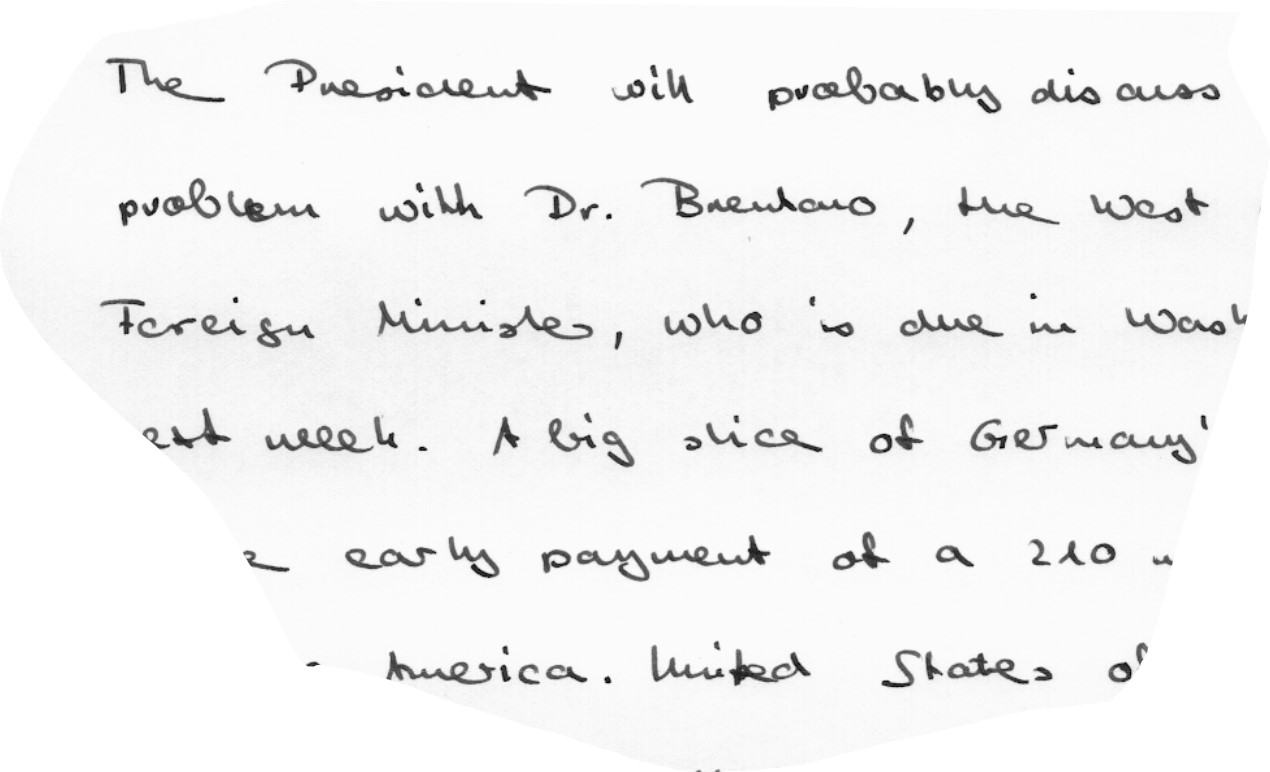 The President will probably discuss
problem with Dr. Brentano, the West
Foreign Minister, who is due in
week. A big slice of Germany'
early payment of a 210
America. United States